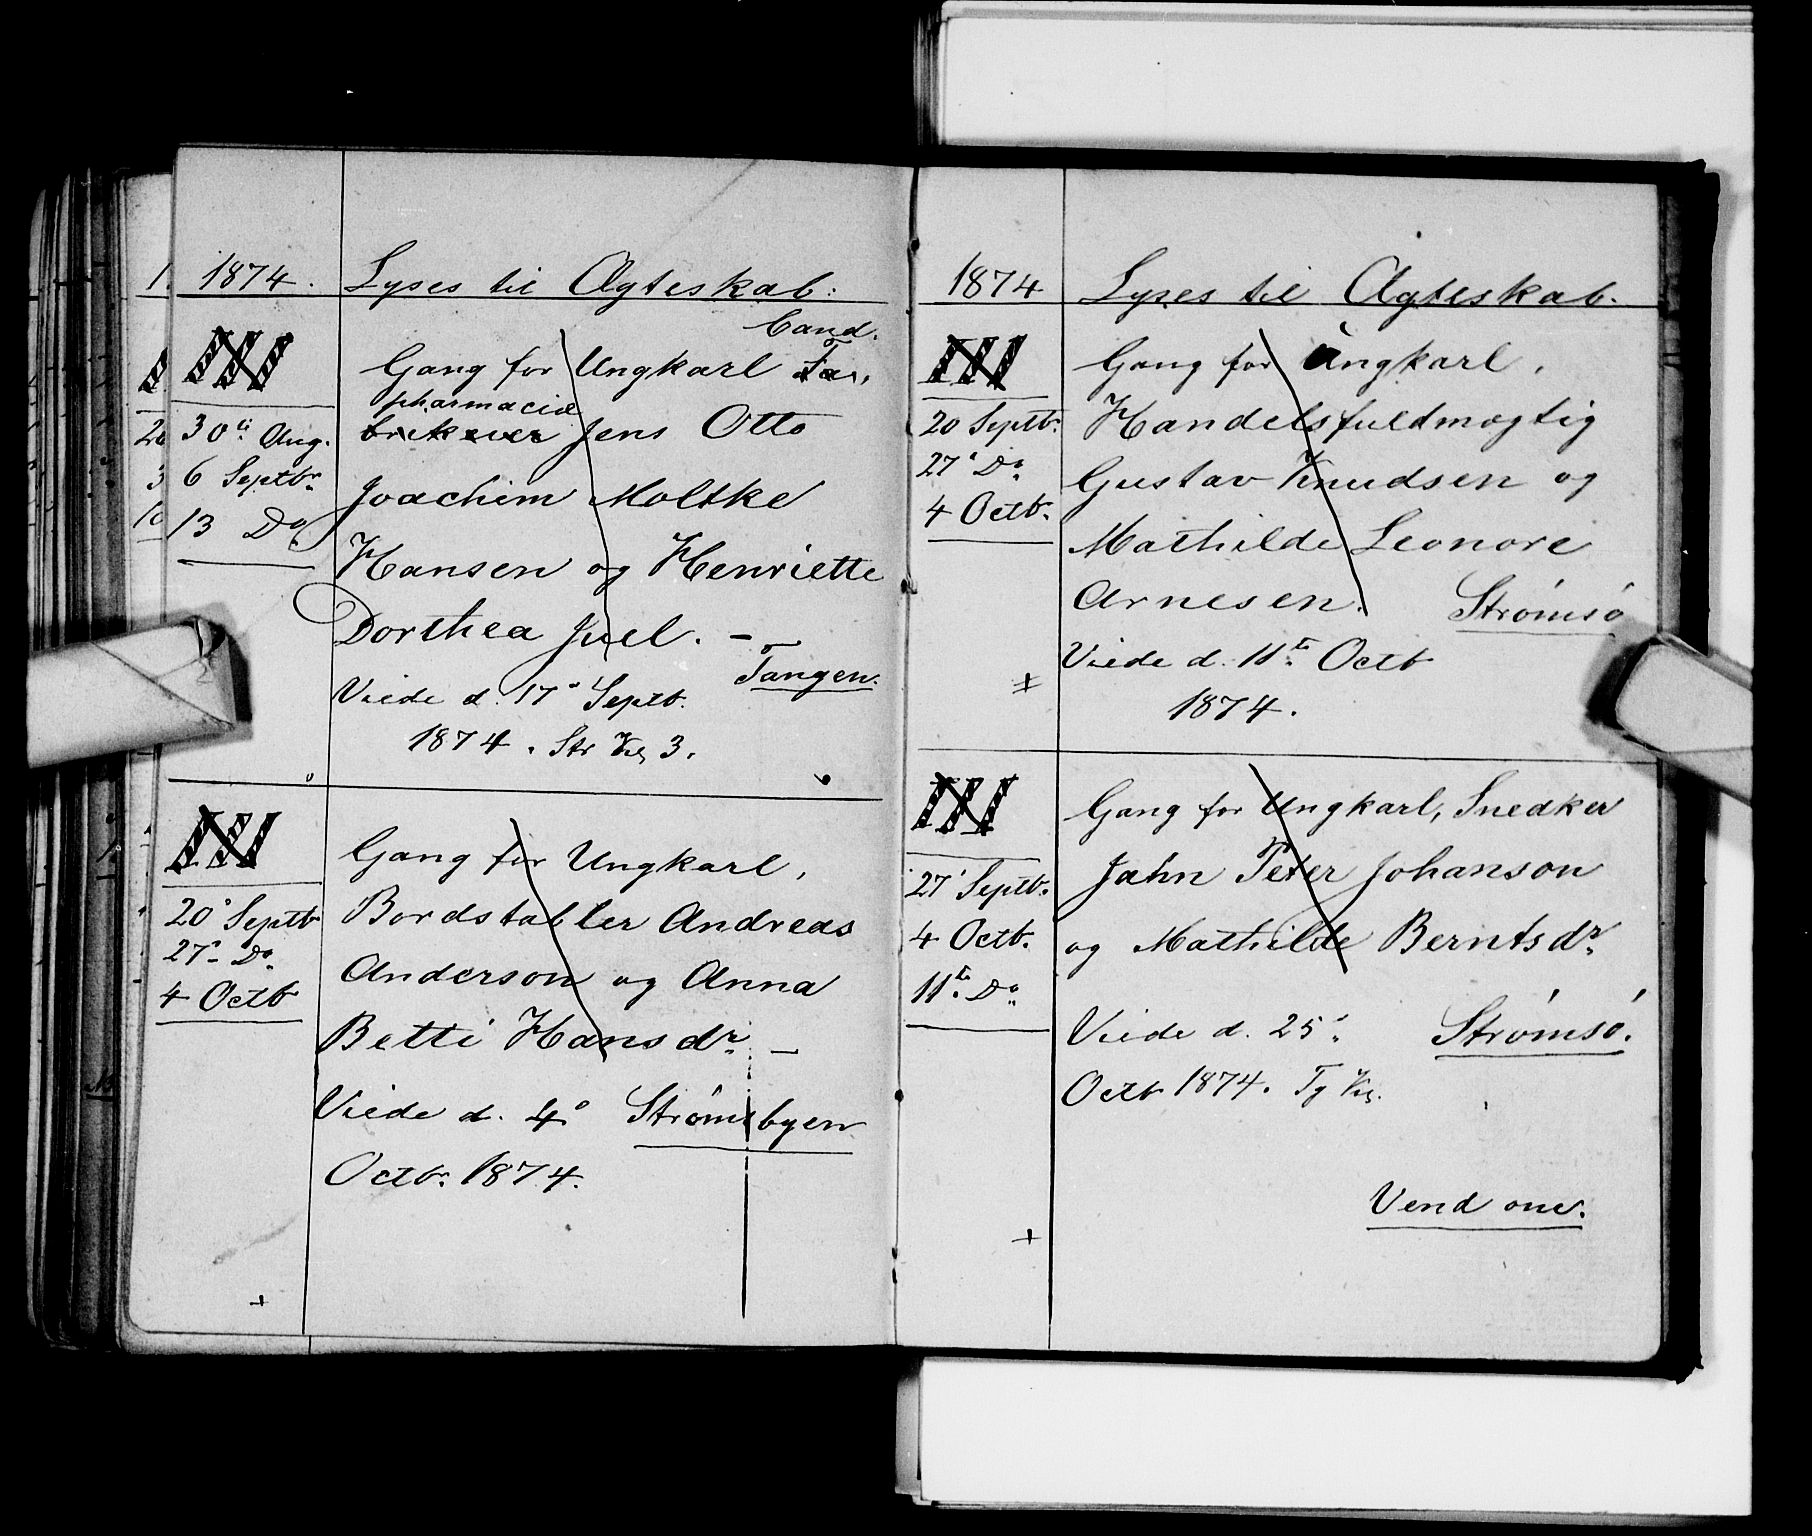 1874.
Lyses til Ægteskab:
III
30 Aug.
6 Septbr.
13 Do
Cand.
Gang for Ungkarl Fa,
pharmaciæ
brikever Jens Otto
Joachim Moltke
Hansen og Henriette
Dorthea Juel. –
Tangen.
Viede d. 17 Septb.
1874. Str Kk 3.
III
20 Septb
27 Do
4 Octb
Gang for Ungkarl,
Bordstabler Andreas
Anderson og Anna
Betti Hansdr. –
Viede d. 4 Strømsbyen
Octb. 1874.
1874
Lyses til Ægteskab.
III
20 Septb.
27 Do
4 Octb.
Gang for Ungkarl,
Handelsfuldmægtig
Gustav Knudsen og
Mathilde Leonore
Arnesen.
Strømsø
Viede d. 11te Octb
1874.
III
27 Septb.
4 Octb.
11te Do
Gang for Ungkarl, Snedker
Jahn Peter Johanson
og Mathilde Berntsdr.
Viede d. 25 Strømsø.
Octb 1874. Tg Kk.
Vend om.